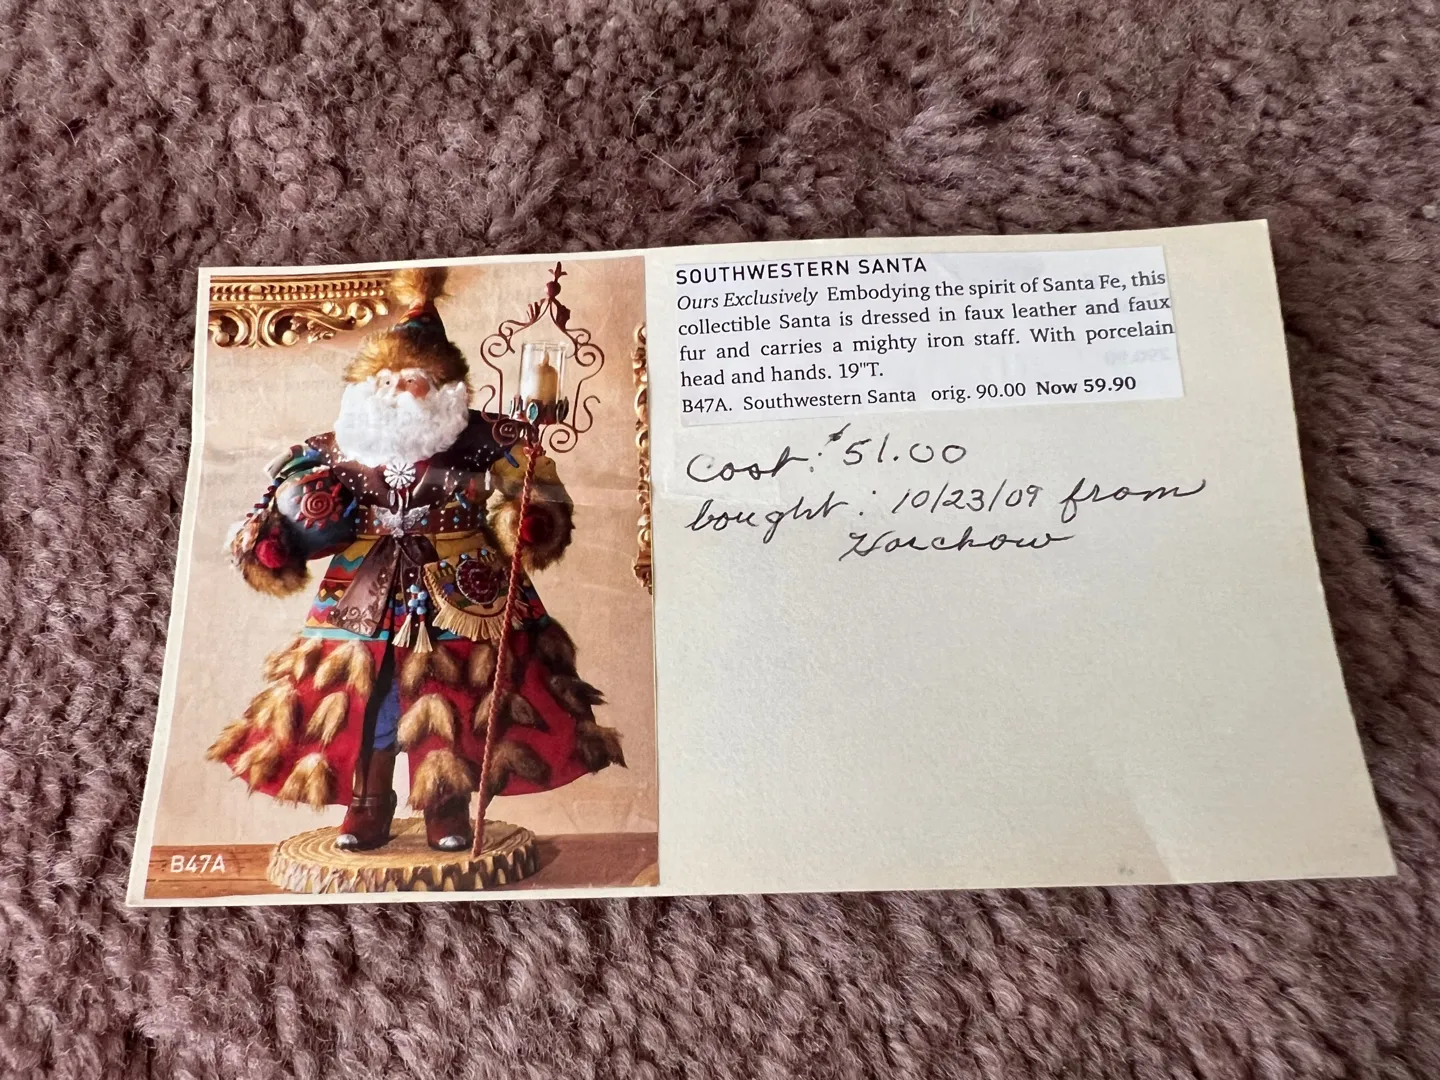 SOUTHWESTERN SANTA
Ours Exclusively Embodying the spirit of Santa Fe, this
collectible Santa is dressed in faux leather and faux
fur and carries a mighty iron staff. With porcelain
head and hands. 19"T.
B47A. Southwestern Santa orig. 90.00 Now 59.90
Cost: $51.00
bought: 10/23/09 from
Horchow
B47A